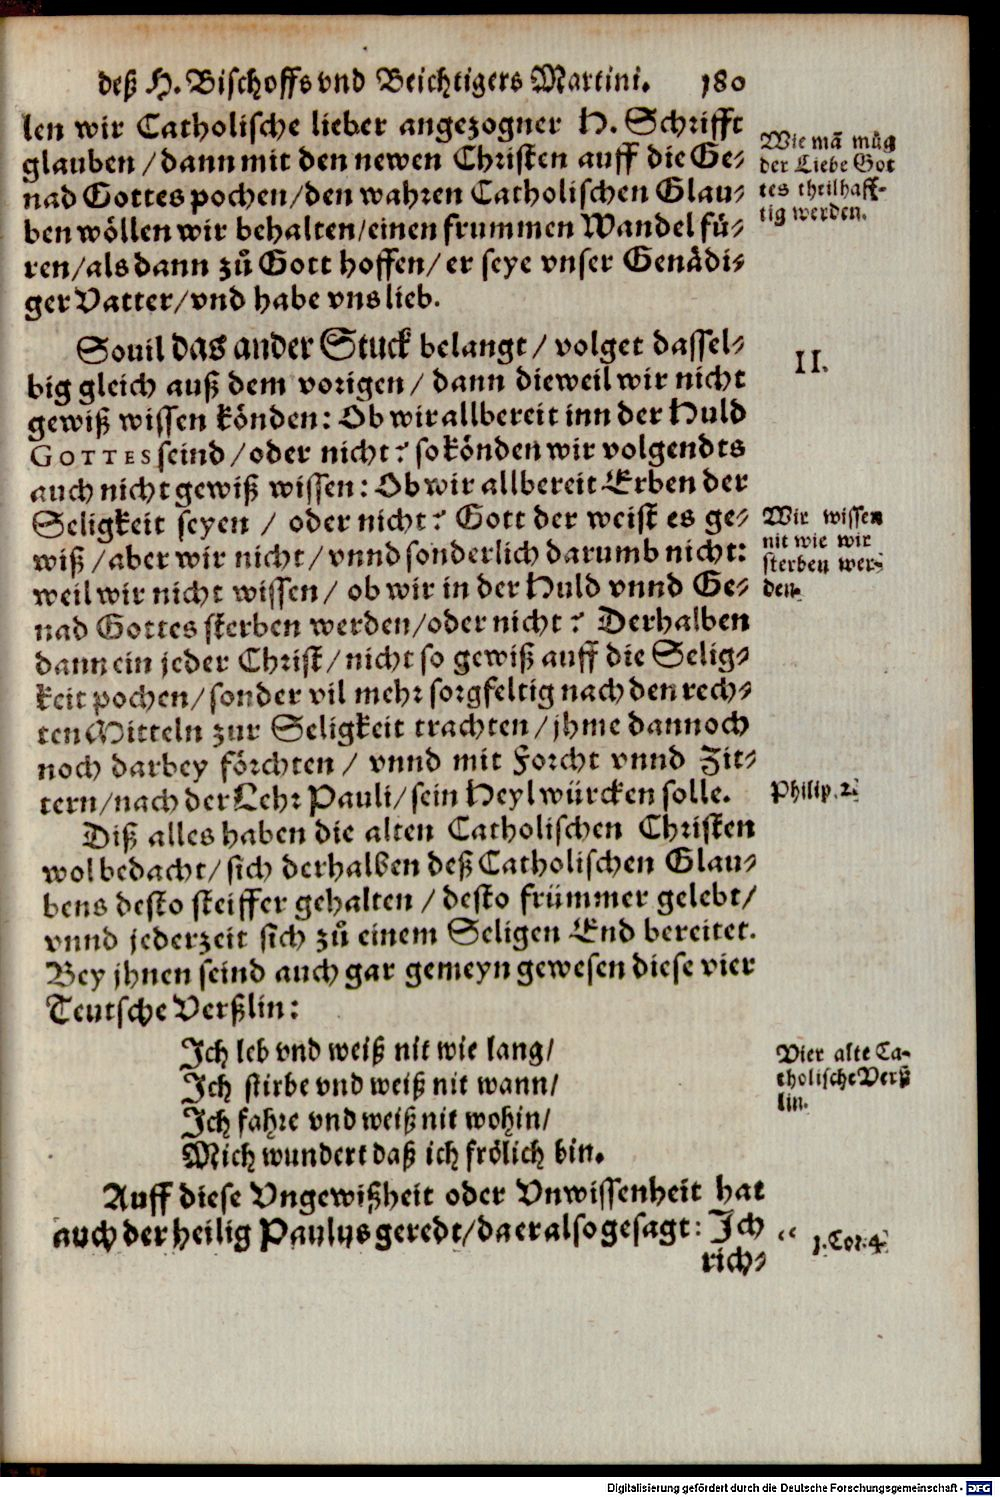 deß H. Bischoffs vnd Beichtigers Martini. 180
len wir Catholische lieber angezogner H. Schrifft
glauben / dann mit den newen Christen auff die Ge-
nad Gottes pochen / den wahren Catholischen Glau-
ben wöllen wir behalten / einen frummen Wandel fü-
ren / als dann zů Gott hoffen / er seye vnser Genådi-
ger Vatter / vnd habe vns lieb.
Wie mã můg
der Liebe Got
tes theilhaff-
tig werden.
Souil das ander Stuck belangt / volget dassel-
big gleich auß dem vorigen / dann dieweil wir nicht
gewiß wissen könden: Ob wir allbereit inn der Huld
GOTTES seind / oder nicht? so könden wir volgendts
auch nicht gewiß wissen: Ob wir allbereit Erben der
Seligkeit seyen / oder nicht? Gott der weist es ge-
wiß / aber wir nicht / vnnd sonderlich darumb nicht:
weil wir nicht wissen / ob wir in der Huld vnnd Ge-
nad Gottes sterben werden / oder nicht? Derhalben
dann ein jeder Christ / nicht so gewiß auff die Selig-
keit pochen / sonder vil mehr sorgfeltig nach den rech-
ten Mitteln zur Seligkeit trachten / jhme dannoch
noch darbey förchten / vnnd mit Forcht vnnd Zit-
tern / nach der Lehr Pauli / sein Heyl würcken solle.
II.
Wir wissen
nit wie wir
sterben wer-
den.
Philip. 2.
Diß alles haben die alten Catholischen Christen
wol bedacht / sich derhalben deß Catholischen Glau-
bens desto steiffer gehalten / desto frümmer gelebt /
vnnd jederzeit sich zů einem Seligen End bereitet.
Bey jhnen seind auch gar gemeyn gewesen diese vier
Teutsche Verßlin:
Ich leb vnd weiß nit wie lang /
Ich stirbe vnd weiß nit wann /
Ich fahre vnd weiß nit wohin /
Mich wundert daß ich frölich bin.
Vier alte Ca-
tholische Verß
lin.
Auff diese Vngewißheit oder Vnwissenheit hat
auch der heilig Paulus geredt / da er also gesagt: Ich
“ 1. Cor. 4.
rich-
Digitalisierung gefördert durch die Deutsche Forschungsgemeinschaft - DFG